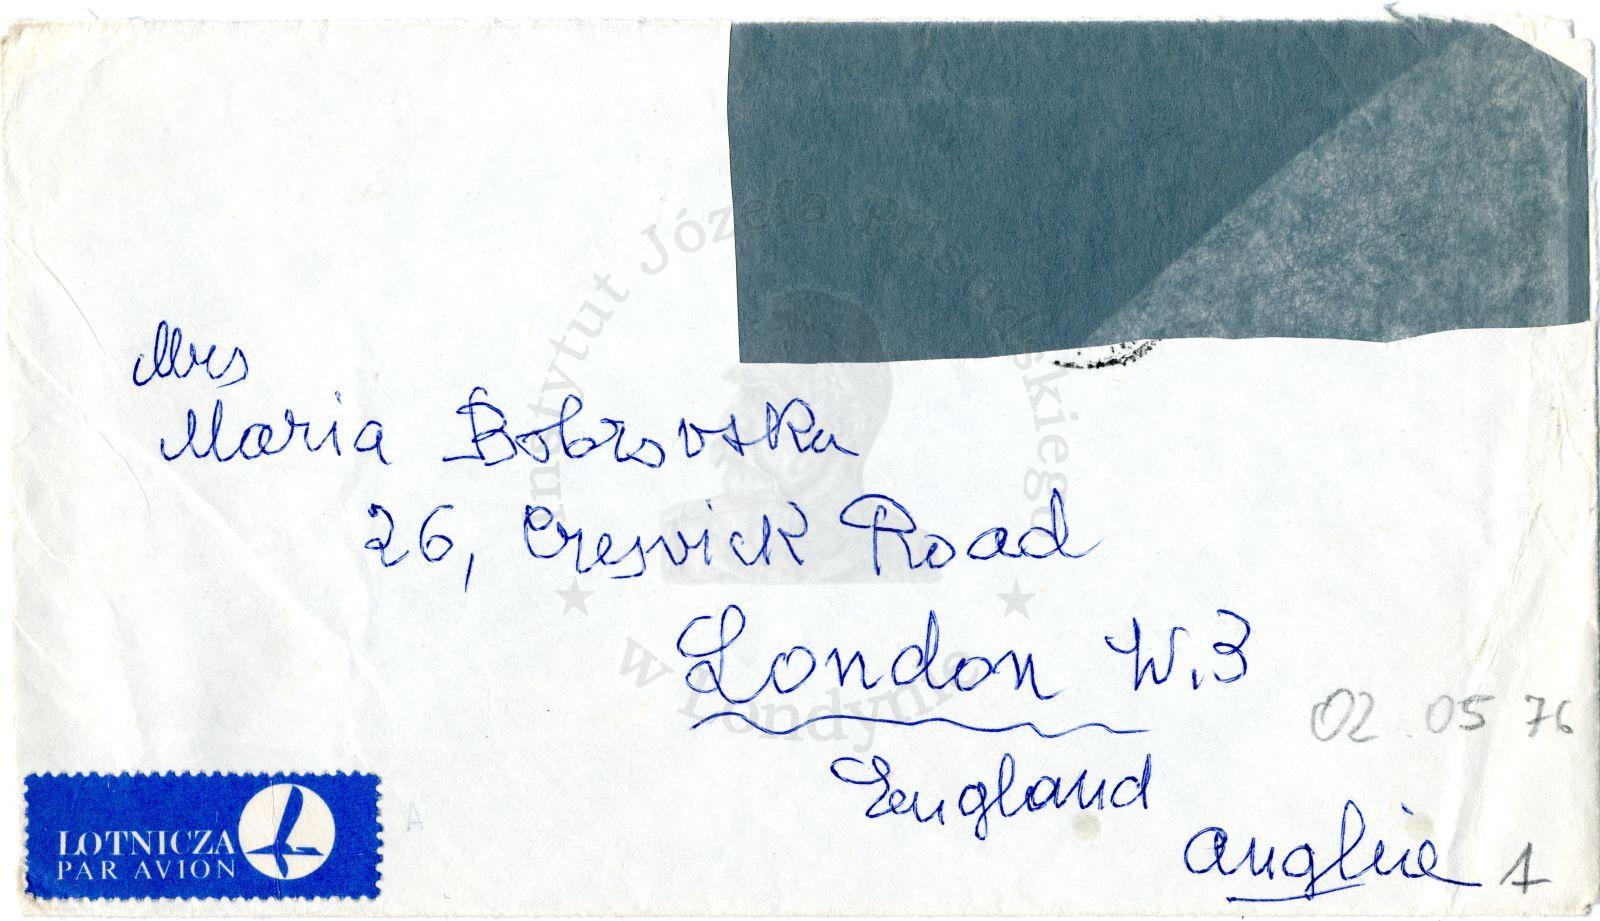 Mrs
Maria Bobrovska
26, Cresvick Road
London W.3
England
Anglie
02.05 76
1
LOTNICZA
PAR AVION
A
Instytut Józefa Piłsudskiego
w Londynie